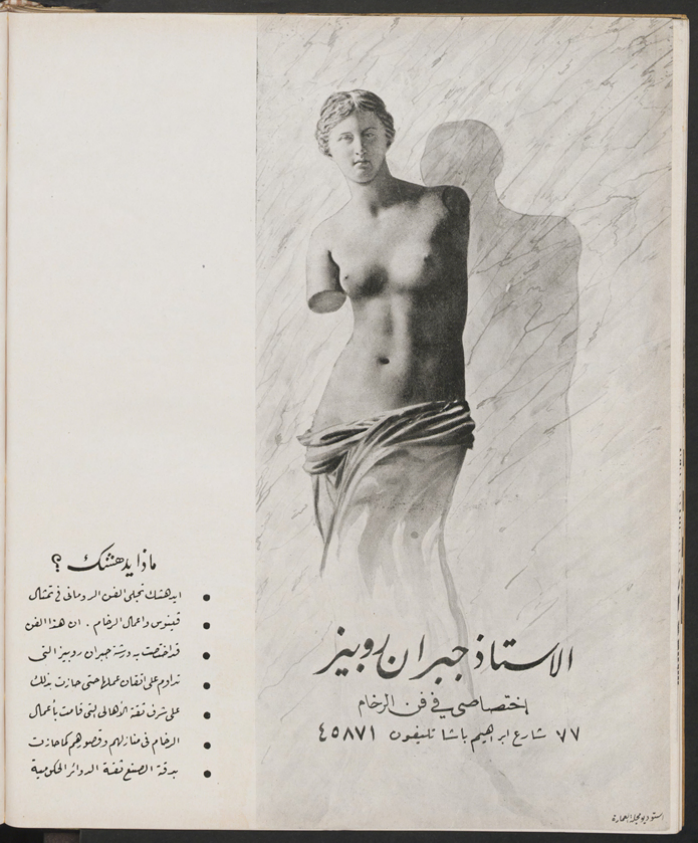 ماذا يدهشك ؟
• ايدهشك تجلى الفن الرومانى فى تمثال
• فينوس واعمال الرخام . ان هذا الفن
• قد اختصت به ورشة جبران روبيز التى
• تداوم على اتقان عملها حتى حازت بذلك
• على شرف ثقة الأهالى التى قامت بأعمال
• الرخام فى منازلهم وقصورهم كما حازت
• بدقة الصنع ثقة الدوائر الحكومية
الاستاذ جبران روبيز
إختصاصى فى فن الرخام
٧٧ شارع ابراهيم باشا تليفون ٤٥٨٧١
استوديو مجلة العمارة